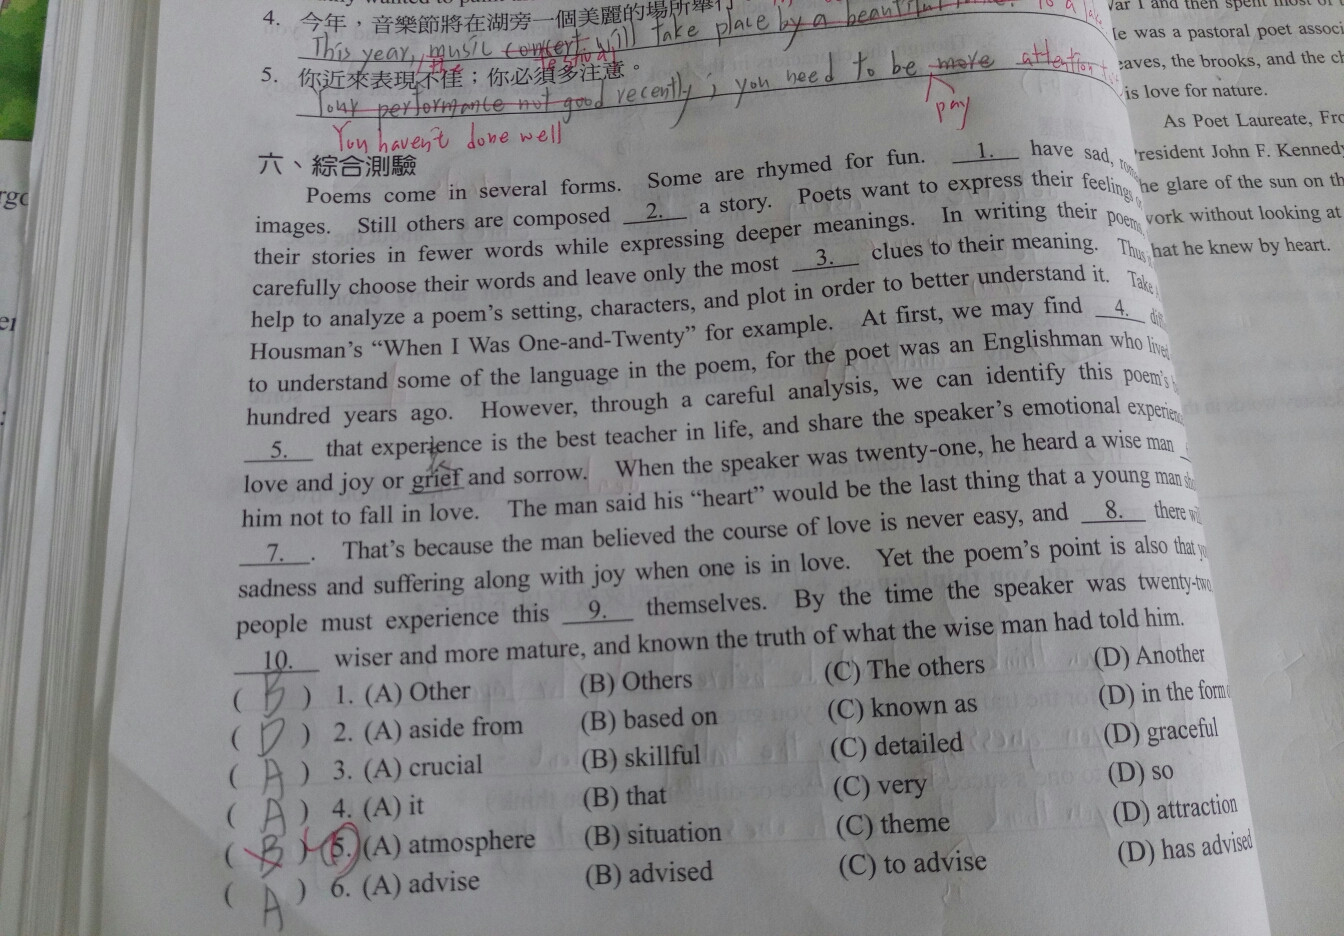 4. 今年，音樂節將在湖旁一個美麗的場所舉行
This year, music concert will take place by a beautiful
festival
to a lake
5. 你近來表現不佳；你必須多注意。
Your performance not good recently; you need to be more attention
pay
You haven't done well
六、綜合測驗
Poems come in several forms. Some are rhymed for fun. 1. have sad,
images. Still others are composed 2. a story. Poets want to express their feelings
their stories in fewer words while expressing deeper meanings. In writing their poems,
carefully choose their words and leave only the most 3. clues to their meaning. Thus,
help to analyze a poem's setting, characters, and plot in order to better understand it. Take
Housman's “When I Was One-and-Twenty” for example. At first, we may find 4.
to understand some of the language in the poem, for the poet was an Englishman who lived
hundred years ago. However, through a careful analysis, we can identify this poem's
5. that experience is the best teacher in life, and share the speaker's emotional
love and joy or grief and sorrow. When the speaker was twenty-one, he heard a wise man
him not to fall in love. The man said his “heart” would be the last thing that a young man
7. . That's because the man believed the course of love is never easy, and 8. there
sadness and suffering along with joy when one is in love. Yet the poem's point is also that
people must experience this 9. themselves. By the time the speaker was twenty-two,
10. wiser and more mature, and known the truth of what the wise man had told him.
( B ) 1. (A) Other (B) Others (C) The others (D) Another
( D ) 2. (A) aside from (B) based on (C) known as (D) in the form
( A ) 3. (A) crucial (B) skillful (C) detailed (D) graceful
( A ) 4. (A) it (B) that (C) very (D) so
( B ) 5. (A) atmosphere (B) situation (C) theme (D) attraction
( A ) 6. (A) advise (B) advised (C) to advise (D) has advised
War I and then spent most of
He was a pastoral poet
eaves, the brooks, and the
is love for nature.
As Poet Laureate,
President John F. Kennedy
he glare of the sun on
work without looking at
hat he knew by heart.